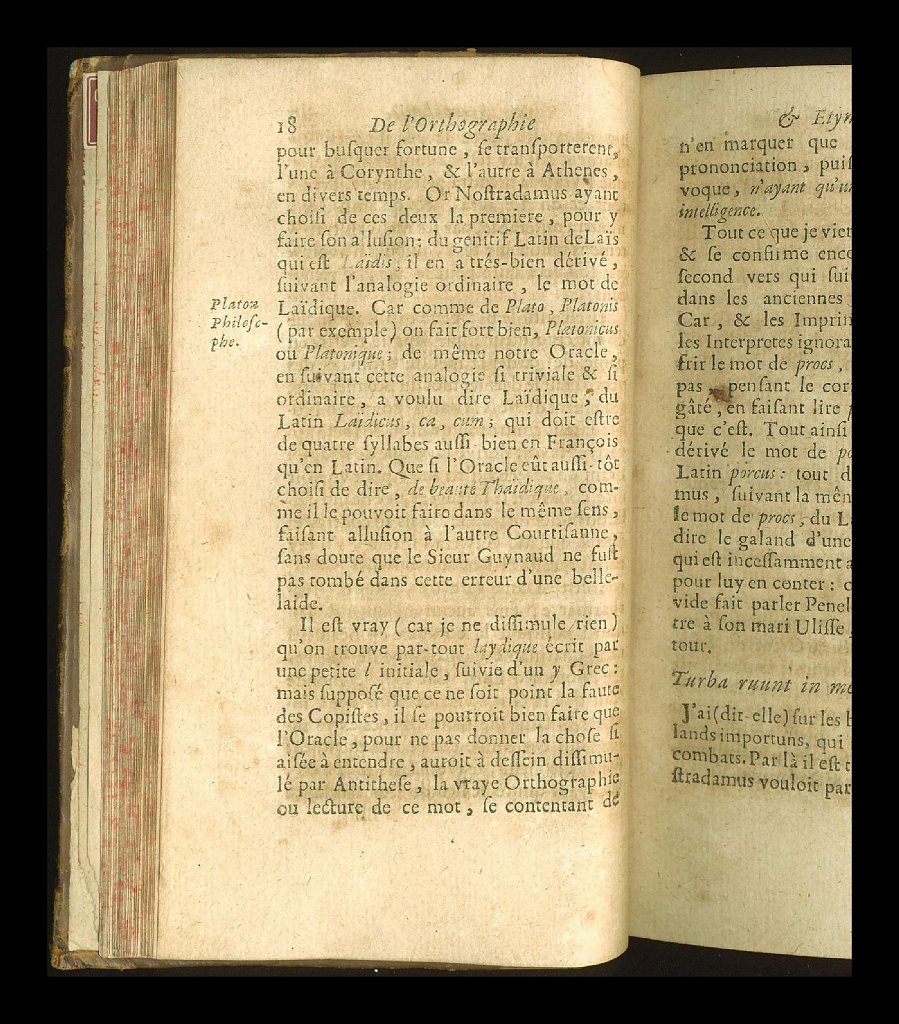 18 De l'Orthographie
pour buſquer fortune, ſe tranſporterent,
l'une à Corynthe, & l'autre à Athenes,
en divers temps. Or Noſtradamus ayant
choiſi de ces deux la premiere, pour y
faire ſon alluſion; du genitif Latin de Laïs
qui eſt Laïdis, il en a trés-bien dérivé,
ſuivant l'analogie ordinaire, le mot de
Laïdique. Car comme de Plato, Platonis
(par exemple) on fait fort bien, Platonicus
ou Platonique; de même notre Oracle,
en ſuivant cette analogie ſi triviale & ſi
ordinaire, a voulu dire Laïdique, du
Latin Laïdicus, ca, cum; qui doit eſtre
de quatre ſyllabes auſſi bien en François
qu'en Latin. Que ſi l'Oracle eût auſſi-tôt
choiſi de dire, de beauté Thaïdique, com-
me il le pouvoit faire dans le même ſens,
faiſant alluſion à l'autre Courtiſanne,
ſans doute que le Sieur Guynaud ne fuſt
pas tombé dans cette erreur d'une belle-
laide.
Il eſt vray (car je ne diſſimule rien)
qu'on trouve par-tout laydique écrit par
une petite l initiale, ſuivie d'un y Grec:
mais ſuppoſé que ce ne ſoit point la faute
des Copiſtes, il ſe pourroit bien faire que
l'Oracle, pour ne pas donner la choſe ſi
aiſée à entendre, auroit à deſſein diſſimu-
lé par Antitheſe, la vraye Orthographie
ou lecture de ce mot, ſe contentant de
Platon
Philoſo-
phe.
& Etym
n'en marquer que
prononciation, puiſ
voque, n'ayant qu'un
intelligence.
Tout ce que je vien
& ſe confirme enco
ſecond vers qui ſui
dans les anciennes
Car, & les Imprim
les Interpretes ignora
frir le mot de procs,
pas penſant le cor
gâté, en faiſant lire p
que c'eſt. Tout ainſi
dérivé le mot de po
Latin porcus: tout d
mus, ſuivant la mên
le mot de procs, du L
dire le galand d'une
qui eſt inceſſamment a
pour luy en conter: c
vide fait parler Penel
tre à ſon mari Uliſſe,
tour.
Turba ruunt in me
J'ai (dit-elle) ſur les b
lands importuns, qui
combats. Par là il eſt t
ſtradamus vouloit par